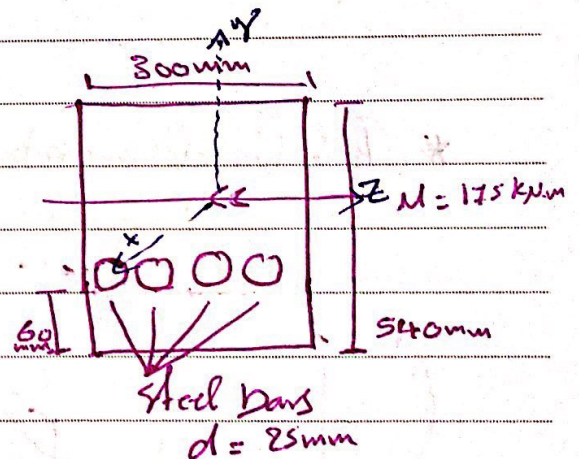 y
300mm
Z M = 175 kN.m
x
60
mm
540mm
Steel bars
d = 25mm